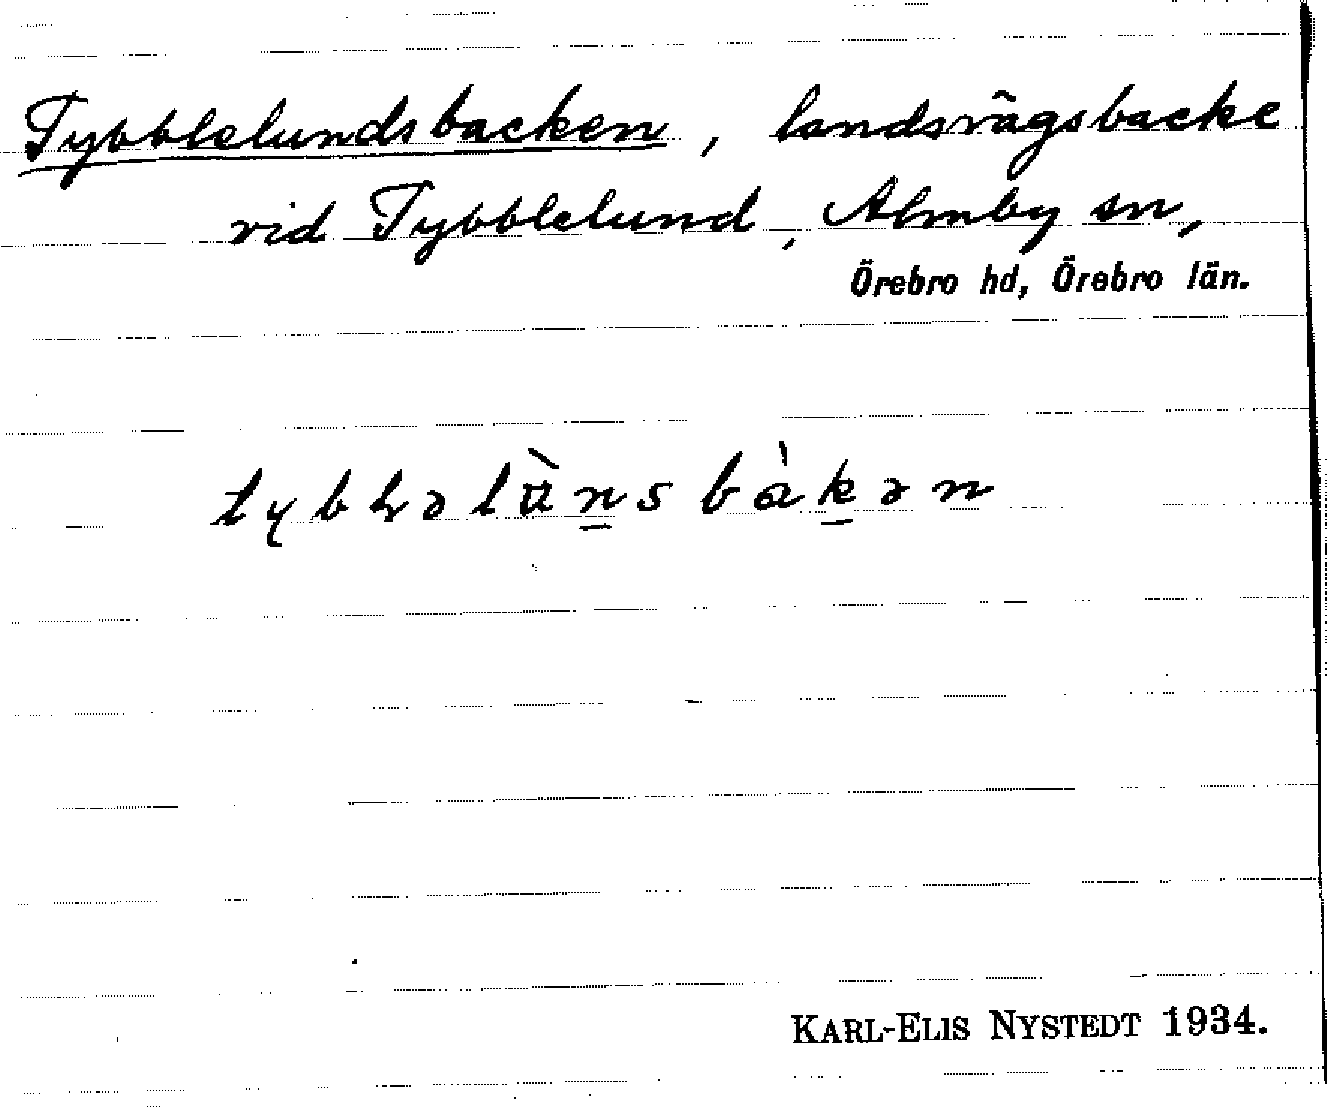 Tybblelundsbacken, landsvägsbacke
vid Tybblelund, Almby sn,
Örebro hd, Örebro län.
KARL-ELIS NYSTEDT 1934.